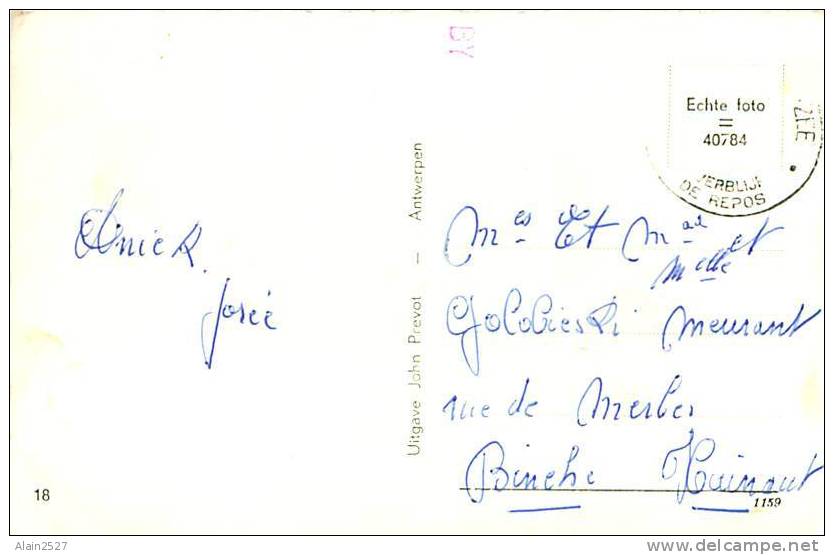 BY
Echte foto
=
40784
ZEE
VERBLIJF
DE REPOS
Annick
Josée
Uitgave John Prevot — Antwerpen
Mes Et Mad et
Melle
Golobieski Meurant
rue de Merbes
Binche Hainaut
18
1159
Alain2527
delcampe.net